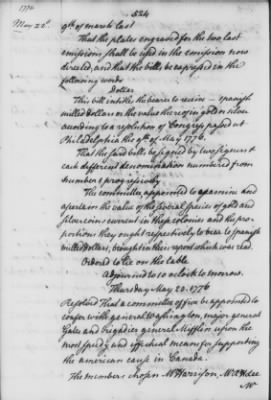 1776
524
May 22d.
9th of march last
That the plates engraved for the two last
emissions shall be used in the emission now
directed, and that the bills be expressed in the
following words
Dollar
This bill intitles the bearer to receive — spanish
milled dollars or the value thereof in gold or silver
according to a resolution of Congress passed at
Philadelphia the 9th of May 1776.
That the said bills be signed by two signers &
each different denomination numbered from
number 1 progressively
The committee appointed to examine and
ascertain the value of the several species of gold and
silver coins current in these colonies and the pro-
portions they ought respectively to bear to Spanish
milled dollars, brought in their report which was read.
Ordered to lie on the table
Adjourned to 10 oClock to morrow.
Thursday May 23. 1776
Resolved That a committee of five be appointed to
confer with general Washington, major general
Gates and brigadier general Mifflin upon the
most speedy and effectual means for supporting
the american cause in Canada.
The members chosen Mr Harrison, Mr R H Lee
Mr